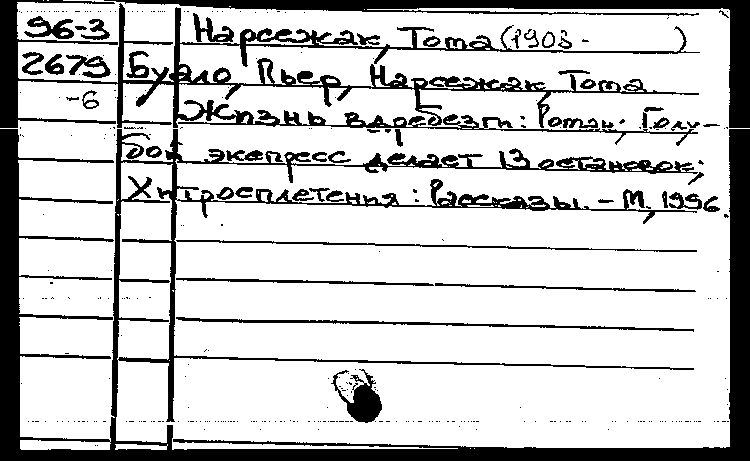 96-3 Нарсежак, Тома (1908- )
2679 Буало, Пьер, Нарсежак, Тома.
-6 Жизнь вдребезги: Роман; Голу-
бой экспресс делает 13 остановок;
Хитросплетения: Рассказы. - М., 1996.